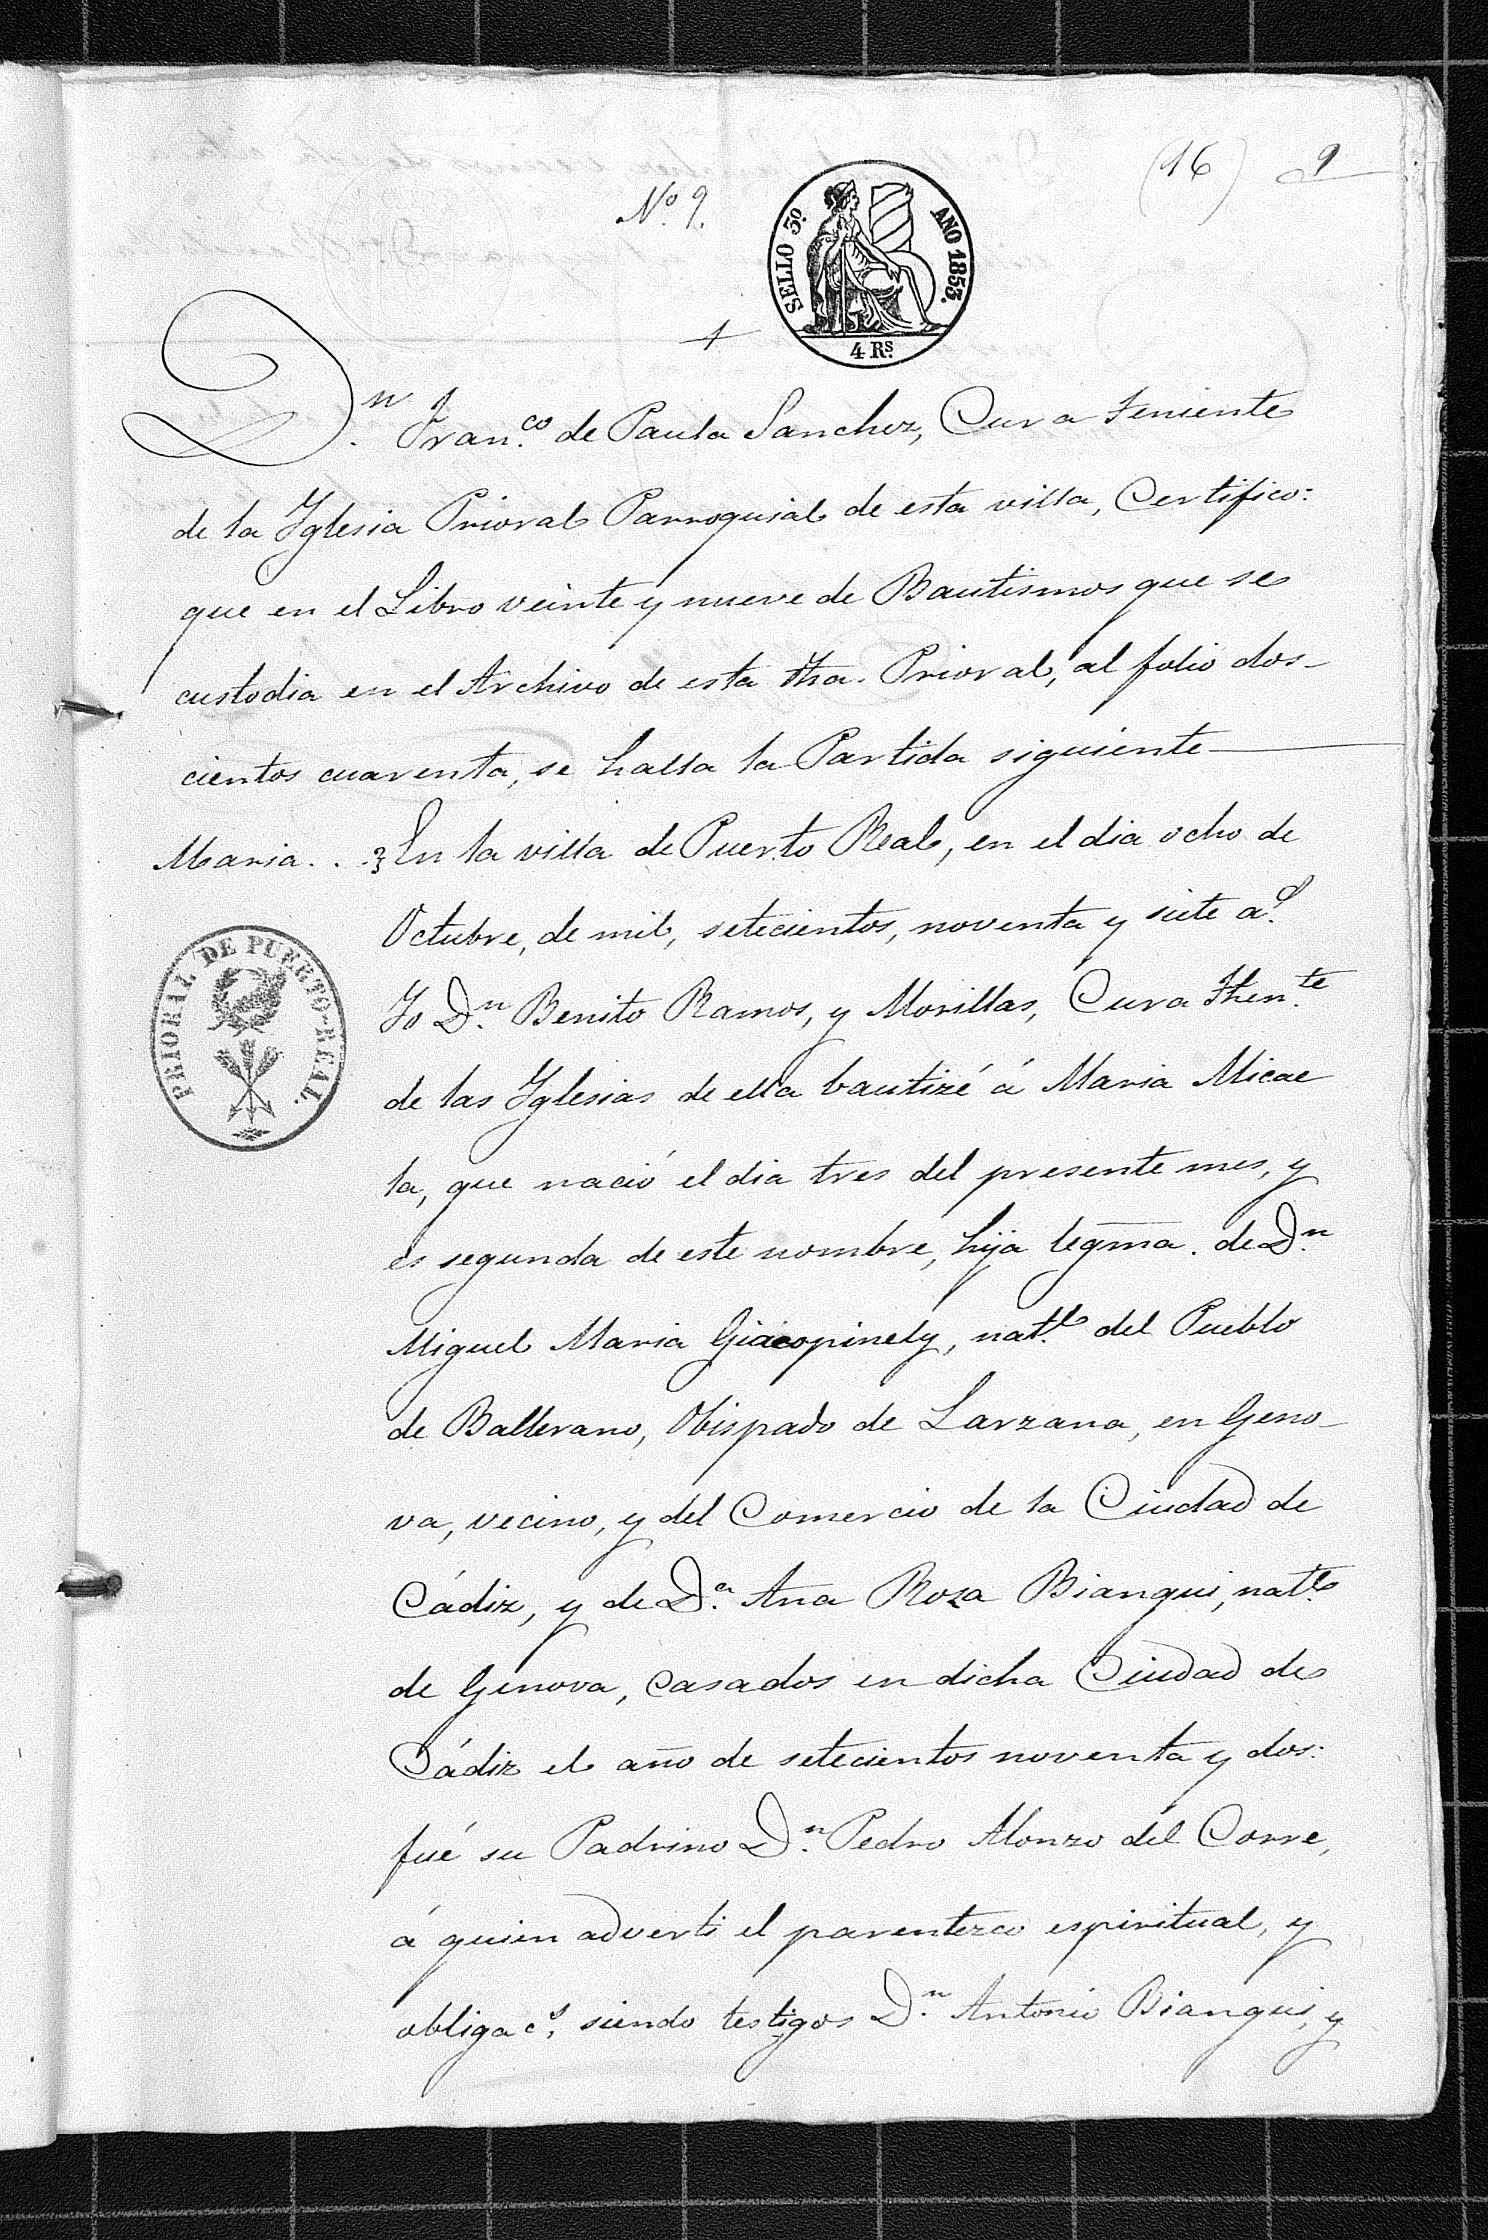 (16) 9
Nº 9.
SELLO 3º AÑO 1853.
4 Rs.
Dn. Franco. de Paula Sanchez, Cura teniente
de la Yglesia Prioral Parroquial de esta villa, Certifico:
que en el Libro veinte y nueve de Bautismos que se
custodia en el Archivo de esta Yha. Prioral, al folio dos-
cientos cuarenta, se halla la Partida siguiente
Maria . . . En la villa de Puerto Real, en el dia ocho de
Octubre, de mil, setecientos, noventa y siete as.
Yo Dn. Benito Ramos, y Morillas, Cura Thente.
de las Yglesias de ella bautizé á Maria Micae
la, que nació el dia tres del presente mes, y
es segunda de este nombre, hija legma. de Dn.
Miguel Maria Giacopinely, natl. del Pueblo
de Ballerano, Obispado de Sarzana, en Geno-
va, vecino, y del Comercio de la Ciudad de
Cádiz, y de Da. Ana Roza Biangui, natl.
de Genova, casados en dicha Ciudad de
Cádiz el año de setecientos noventa y dos:
fué su Padrino Dn. Pedro Alonzo del Corre,
á quien adverti el parentezco espiritual, y
obligacs. siendo testigos Dn. Antonio Biangui, y
PRIORAL DE PUERTO-REAL.